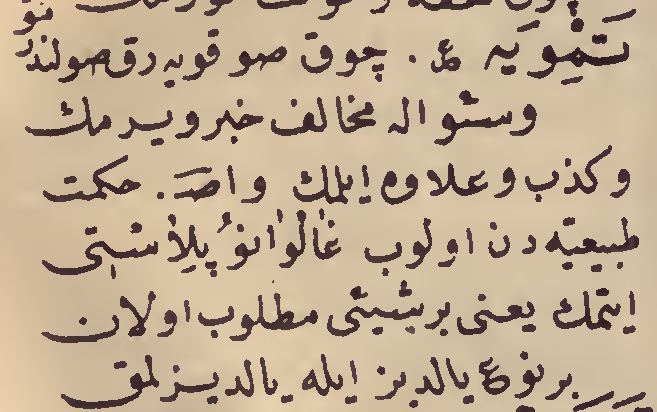 تَمْوِيَه ع . چوق صو قويه رق صولند
وسئواله مخالف خبر ويرمك
وكذب وعلاوه ايلمك واصـ . حكمت
طبيعيّه دن اولوب غالوانو پلاستى
ايتمك يعنى بر شيئى مطلوب اولان
بر نوع يالديز ايله يالديزلمق